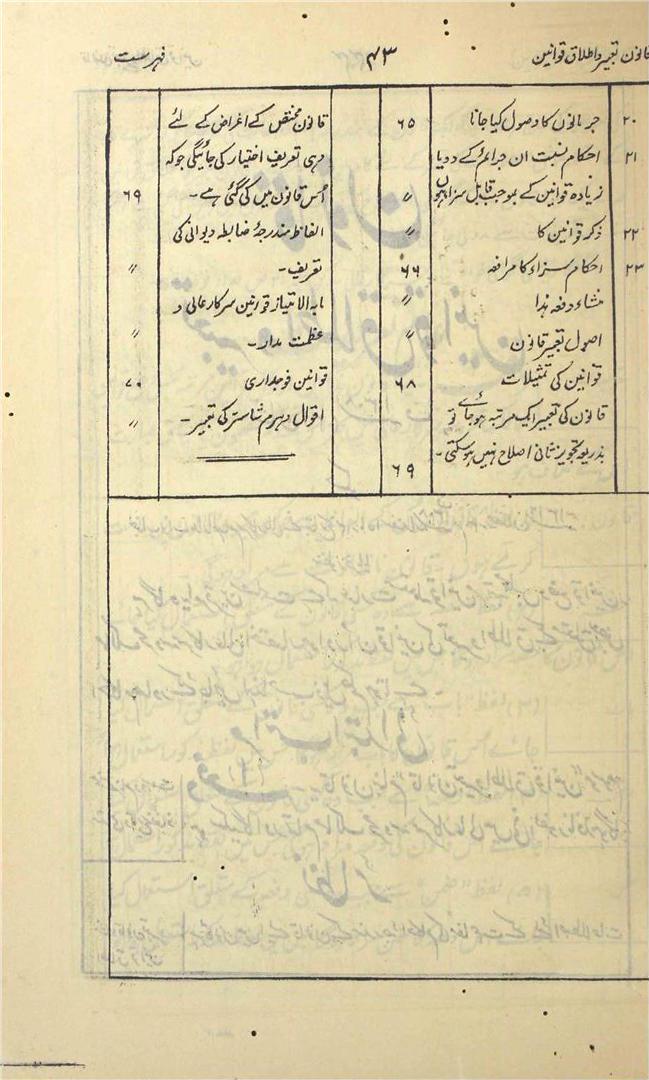 قانون تعبیر و اطلاق قوانین
۴۳
فہرست
۲۰ جرمانوں کا وصول کیا جانا ۶۵
۲۱ احکام نسبت ان جرائم کے جو دو یا
زیادہ قوانین کے بموجب قابل سزا ہوں 〃
۲۲ ذکر قوانین کا 〃
۲۳ احکام سزاء کا مرافعہ ۶۶
منشاء دفعہ ہذا 〃
اصول تعبیر قانون 〃
قوانین کی تمثیلات ۶۸
قانون کی تعبیر ایک مرتبہ ہوجائے تو
بذریعہ تجویز ثانی اصلاح نہیں ہوسکتی۔ ۶۹
قانون مختص کے اغراض کے لئے
وہی تعریف اختیار کی جائیگی جو کہ
اُس قانون میں کی گئی ہے۔ ۶۹
الفاظ مندرجۂ ضابطہ دیوانی کی
تعریف۔ 〃
مابہ الامتیاز قوانین سرکار عالی و
عظمت مدار۔ 〃
قوانین فوجداری ۷۰
اقوال دہرم شاستر کی تعبیر۔ 〃